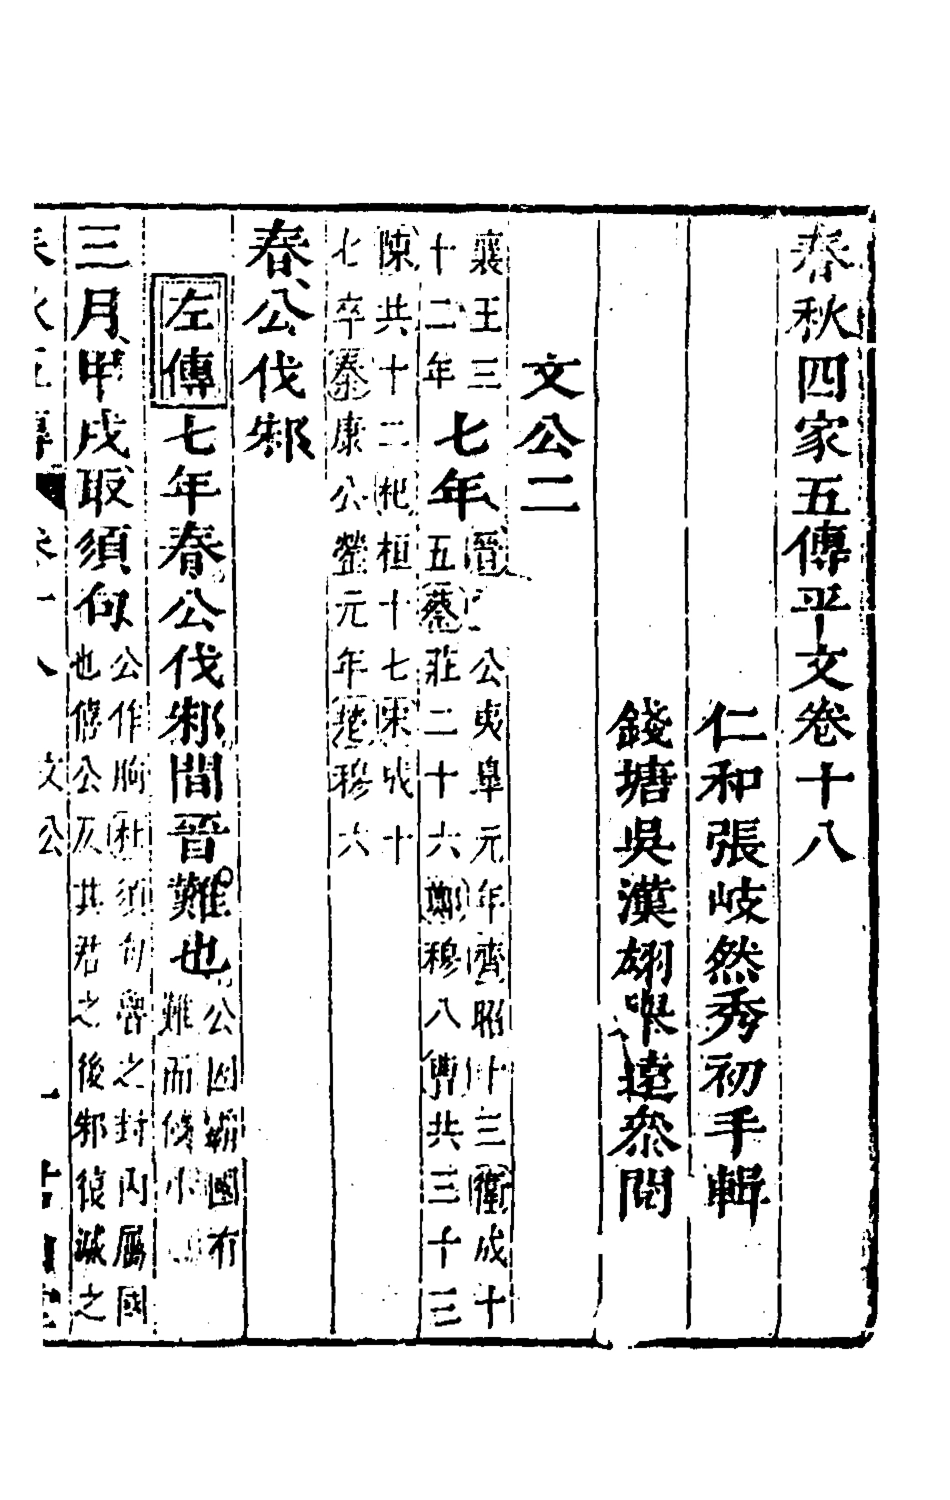 春秋四家五傳平文卷十八
仁和張岐然秀初手輯
錢塘吳漢翊遠叅閱
文公二
襄王三
十二年
七年
晉公夷皐元年齊昭十三衛成十
五蔡莊二十六鄭穆八曹共三十三
陳共十二杞桓十七宋成十
七卒秦康公罃元年楚穆六
春公伐邾
左傳七年春公伐邾間晉難也
公因霸國有
難而侵小
三月甲戌取須句
公作朐杜須句魯之封內屬國
也僖公反其君之後邾復滅之
春秋五傳 卷十八 文公 一